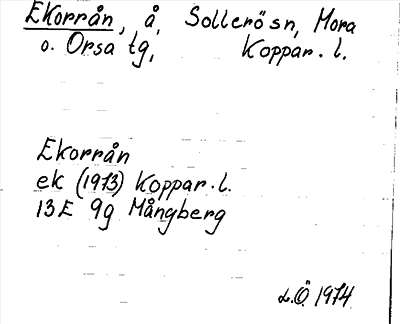 Ekorrån, å, Sollerösn, Mora
o. Orsa tg, Koppar. l.
Ekorrån
ek (1973) Koppar. l.
13E 9g Mångberg
L.Ö. 1974